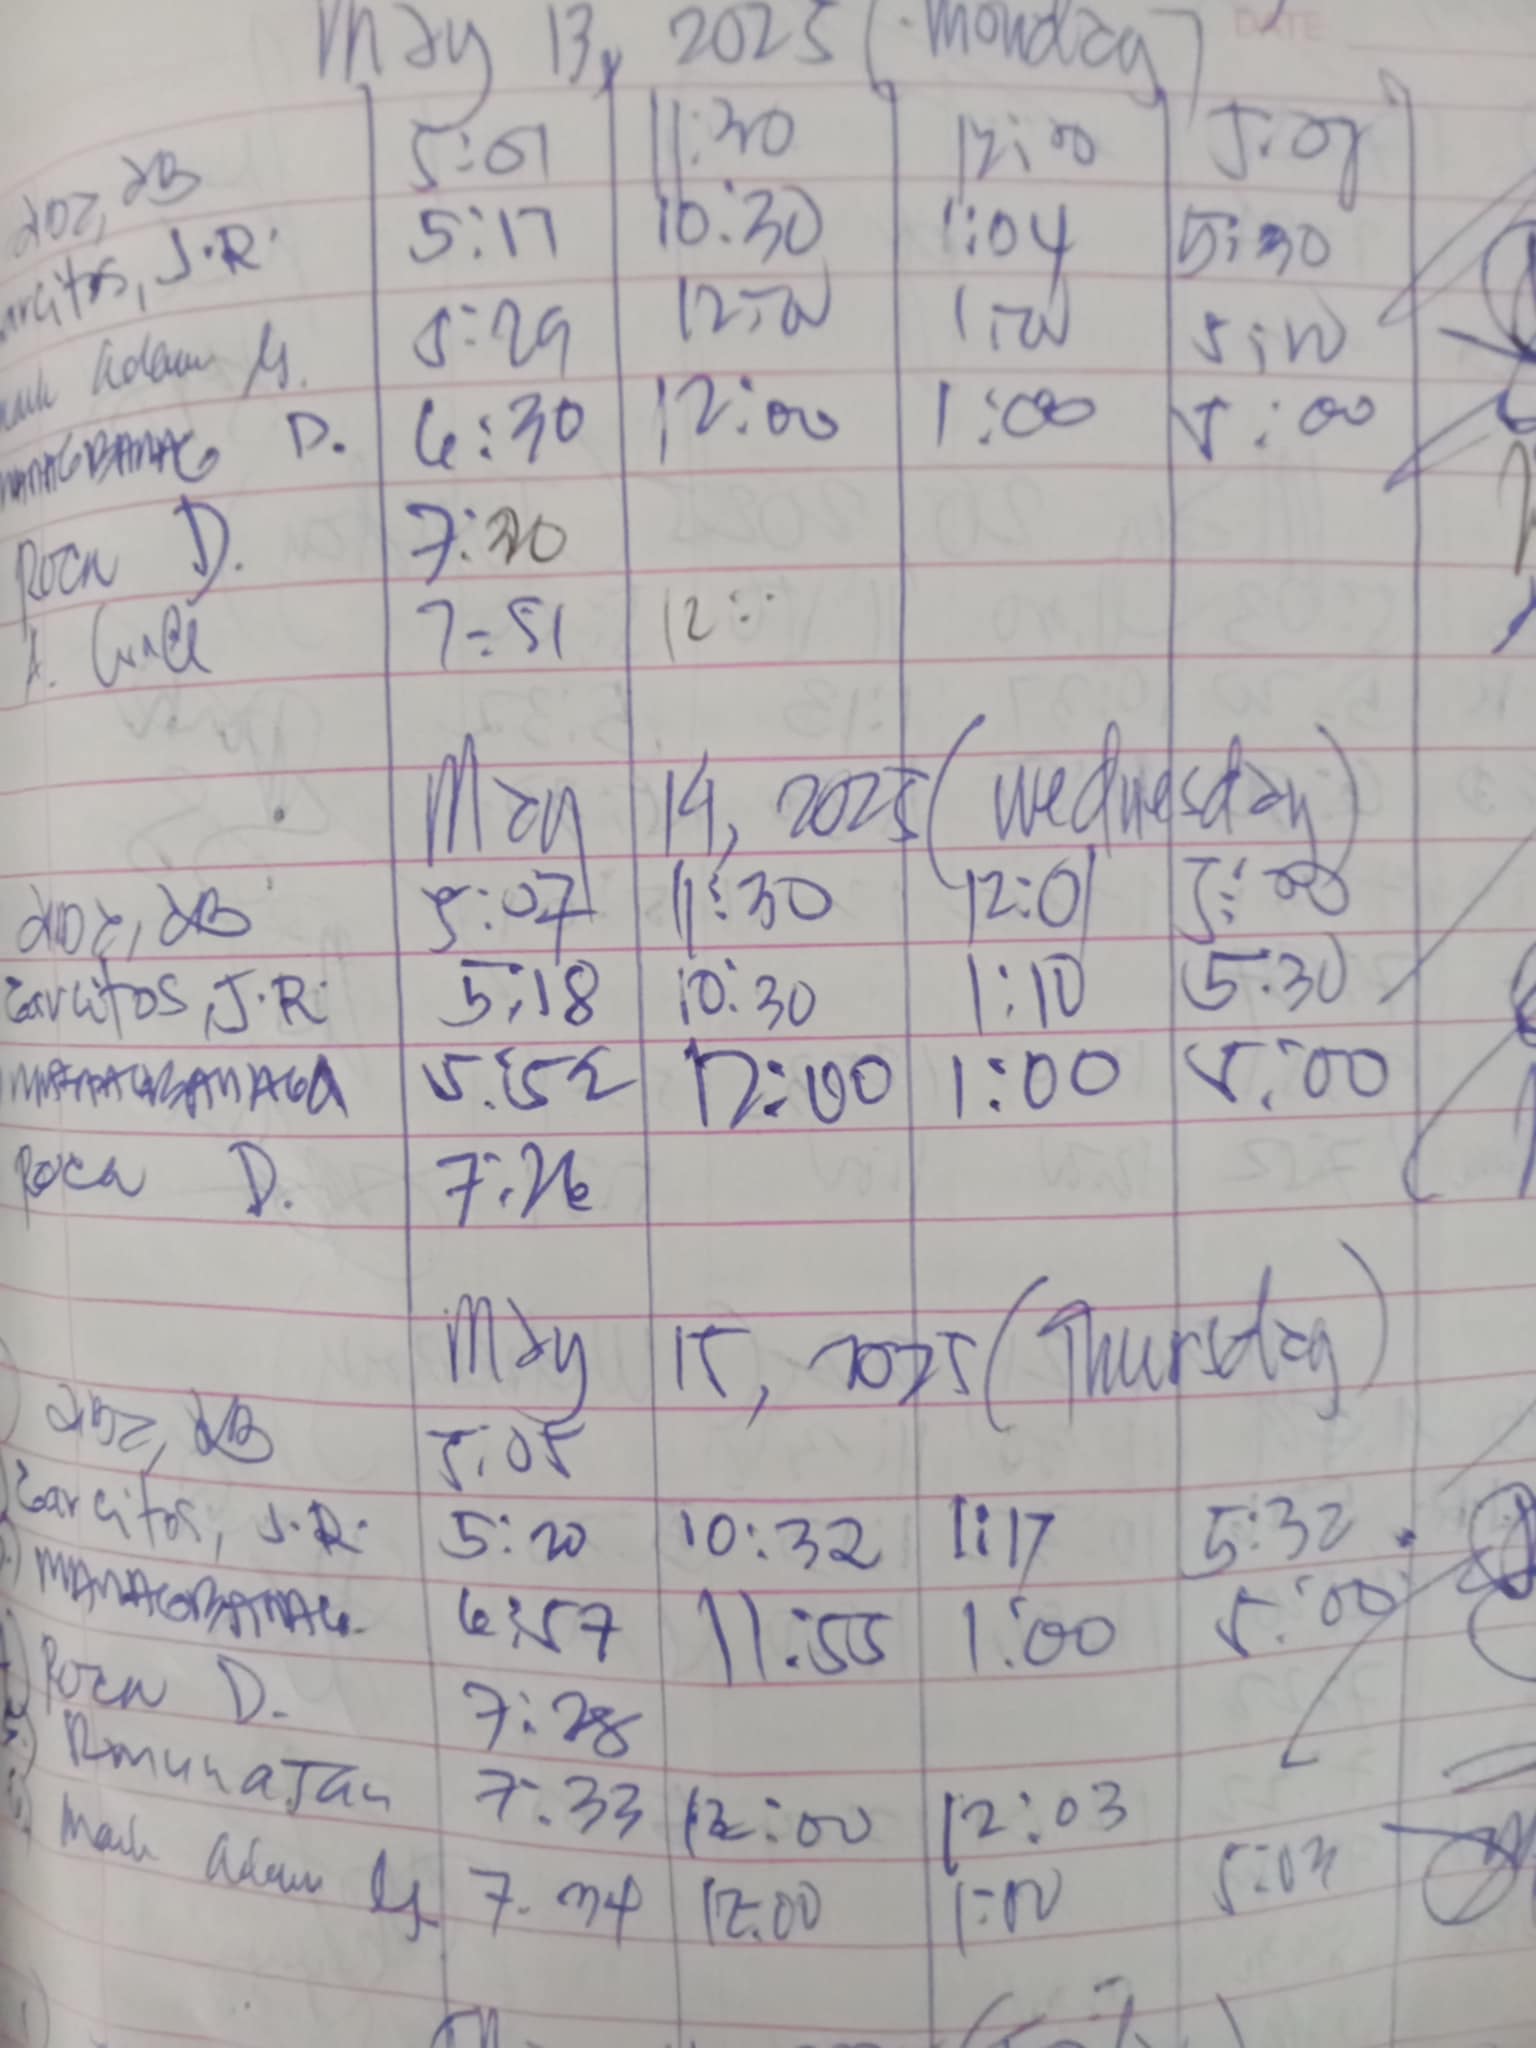 May 13, 2025 (Monday)
DATE
5:01 11:30 12:00 5:08
arcitos, J.R. 5:17 10:30 1:04 5:30
Adam G. 5:29 12:00 1:00 5:10
MANAGBANAG D. 6:30 12:00 1:00 5:00
Roca D. 7:30
A. 7:51 12:
May 14, 2025 (Wednesday)
5:07 11:30 12:01 5:00
Garcitos, J.R. 5:18 10:30 1:10 5:30
MANAGBANAG 5:52 12:00 1:00 5:00
Roca D. 7:26
May 15, 2025 (Thursday)
5:05
Garcitos, J.R. 5:20 10:32 1:17 5:32
MANAGBANAG 6:57 11:55 1:00 5:00
Roca D. 7:28
7:33 12:00 12:03
Mark Adam G. 7:34 12:00 1:00 5:03